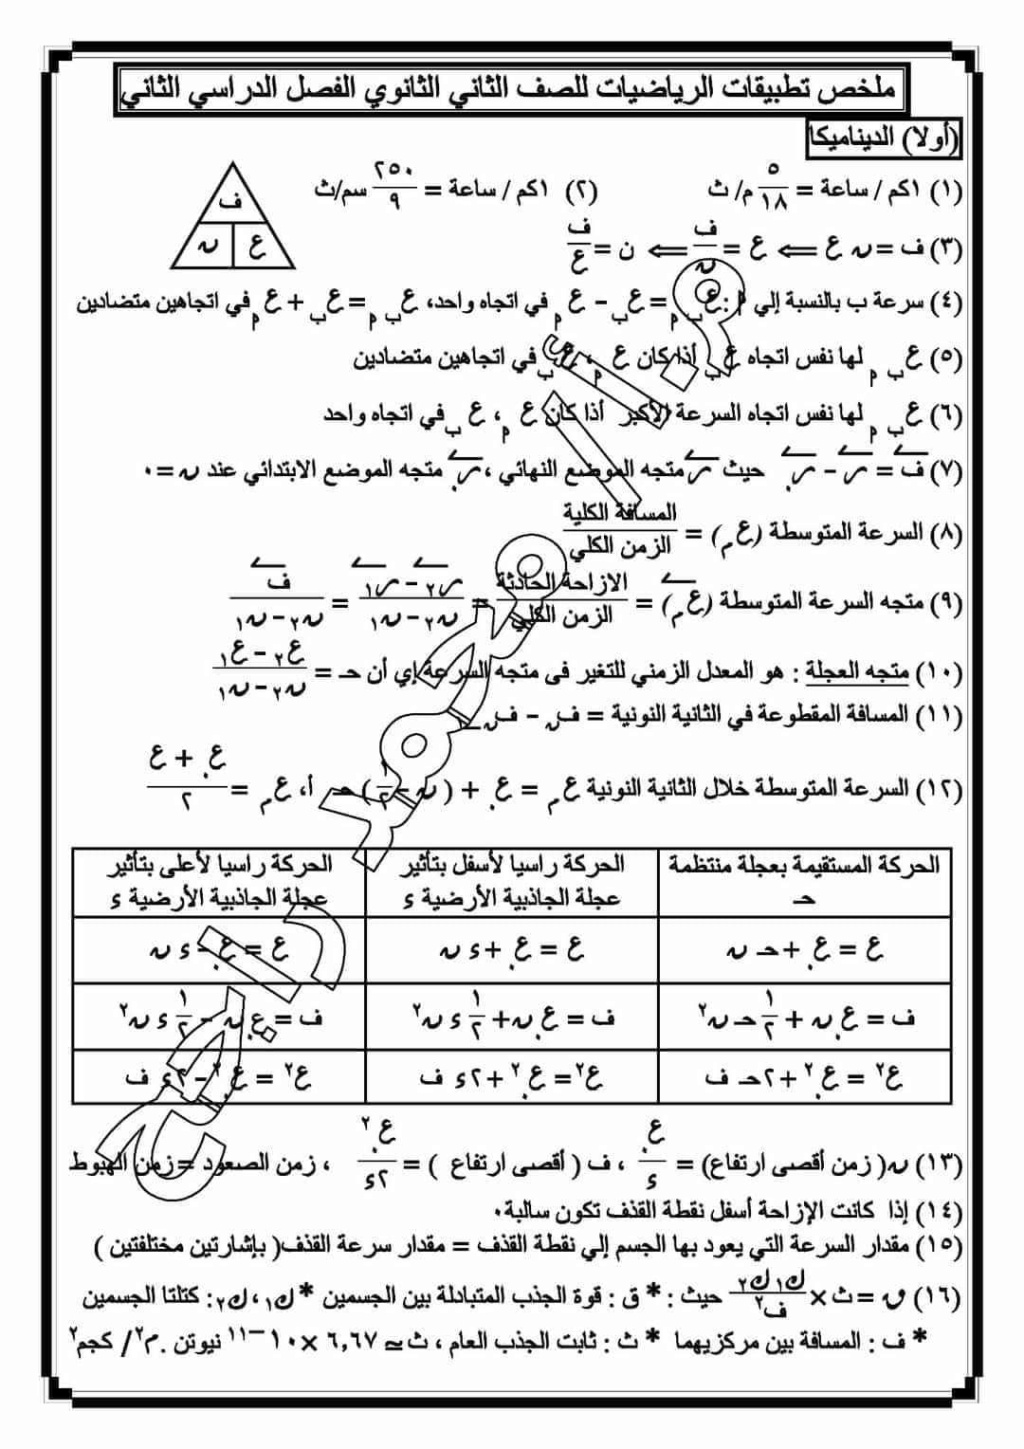 ملخص تطبيقات الرياضيات للصف الثاني الثانوي الفصل الدراسي الثاني
(أولا) الديناميكا
(١) ١كم / ساعة = ٥/١٨ م/ ث (٢) ١كم / ساعة = ٢٥٠/٩ سم/ث
ف
ع ن
(٣) ف = ن ع ⇐ ع = ف/ن ⇐ ن = ف/ع
(٤) سرعة ب بالنسبة إلي أ : ع ب م = ع ب - ع م في اتجاه واحد، ع ب م = ع ب + ع م في اتجاهين متضادين
(٥) ع ب م لها نفس اتجاه ع ب أذا كان ع م ، ع ب في اتجاهين متضادين
(٦) ع ب م لها نفس اتجاه السرعة الأكبر أذا كان ع م ، ع ب في اتجاه واحد
(٧) ف = ر - ر. حيث ر متجه الموضع النهائي ، ر. متجه الموضع الابتدائي عند ن = ٠
(٨) السرعة المتوسطة (ع م) = المسافة الكلية / الزمن الكلي
(٩) متجه السرعة المتوسطة (ع م) = الازاحة الحادثة / الزمن الكلي = ر٢ - ر١ / ن٢ - ن١ = ف / ن٢ - ن١
(١٠) متجه العجلة : هو المعدل الزمني للتغير فى متجه السرعة إي أن حـ = ع٢ - ع١ / ن٢ - ن١
(١١) المسافة المقطوعة في الثانية النونية = ف ن - ف ن-١
(١٢) السرعة المتوسطة خلال الثانية النونية ع م = ع. + ( ن - ١/٢ ) حـ أ، ع م = ع. + ع / ٢
الحركة المستقيمة بعجلة منتظمة حـ
الحركة راسيا لأسفل بتأثير عجلة الجاذبية الأرضية ء
الحركة راسيا لأعلى بتأثير عجلة الجاذبية الأرضية ء
ع = ع. + حـ ن
ع = ع. + ء ن
ع = ع. - ء ن
ف = ع. ن + ١/٢ حـ ن٢
ف = ع. ن + ١/٢ ء ن٢
ف = ع. ن - ١/٢ ء ن٢
ع٢ = ع.٢ + ٢حـ ف
ع٢ = ع.٢ + ٢ء ف
ع٢ = ع.٢ - ٢ء ف
(١٣) ن( زمن أقصى ارتفاع) = ع./ء ، ف ( أقصى ارتفاع ) = ع.٢/٢ء ، زمن الصعود = زمن الهبوط
(١٤) إذا كانت الإزاحة أسفل نقطة القذف تكون سالبة.
(١٥) مقدار السرعة التي يعود بها الجسم إلي نقطة القذف = مقدار سرعة القذف( بإشارتين مختلفتين )
(١٦) ق = ث × ك١ ك٢ / ف٢ حيث : * ق : قوة الجذب المتبادلة بين الجسمين * ك١ ، ك٢ : كتلتا الجسمين
* ف : المسافة بين مركزيهما * ث : ثابت الجذب العام ، ث ≃ ٦,٦٧ × ١٠ –١١ نيوتن .م٢/ كجم٢